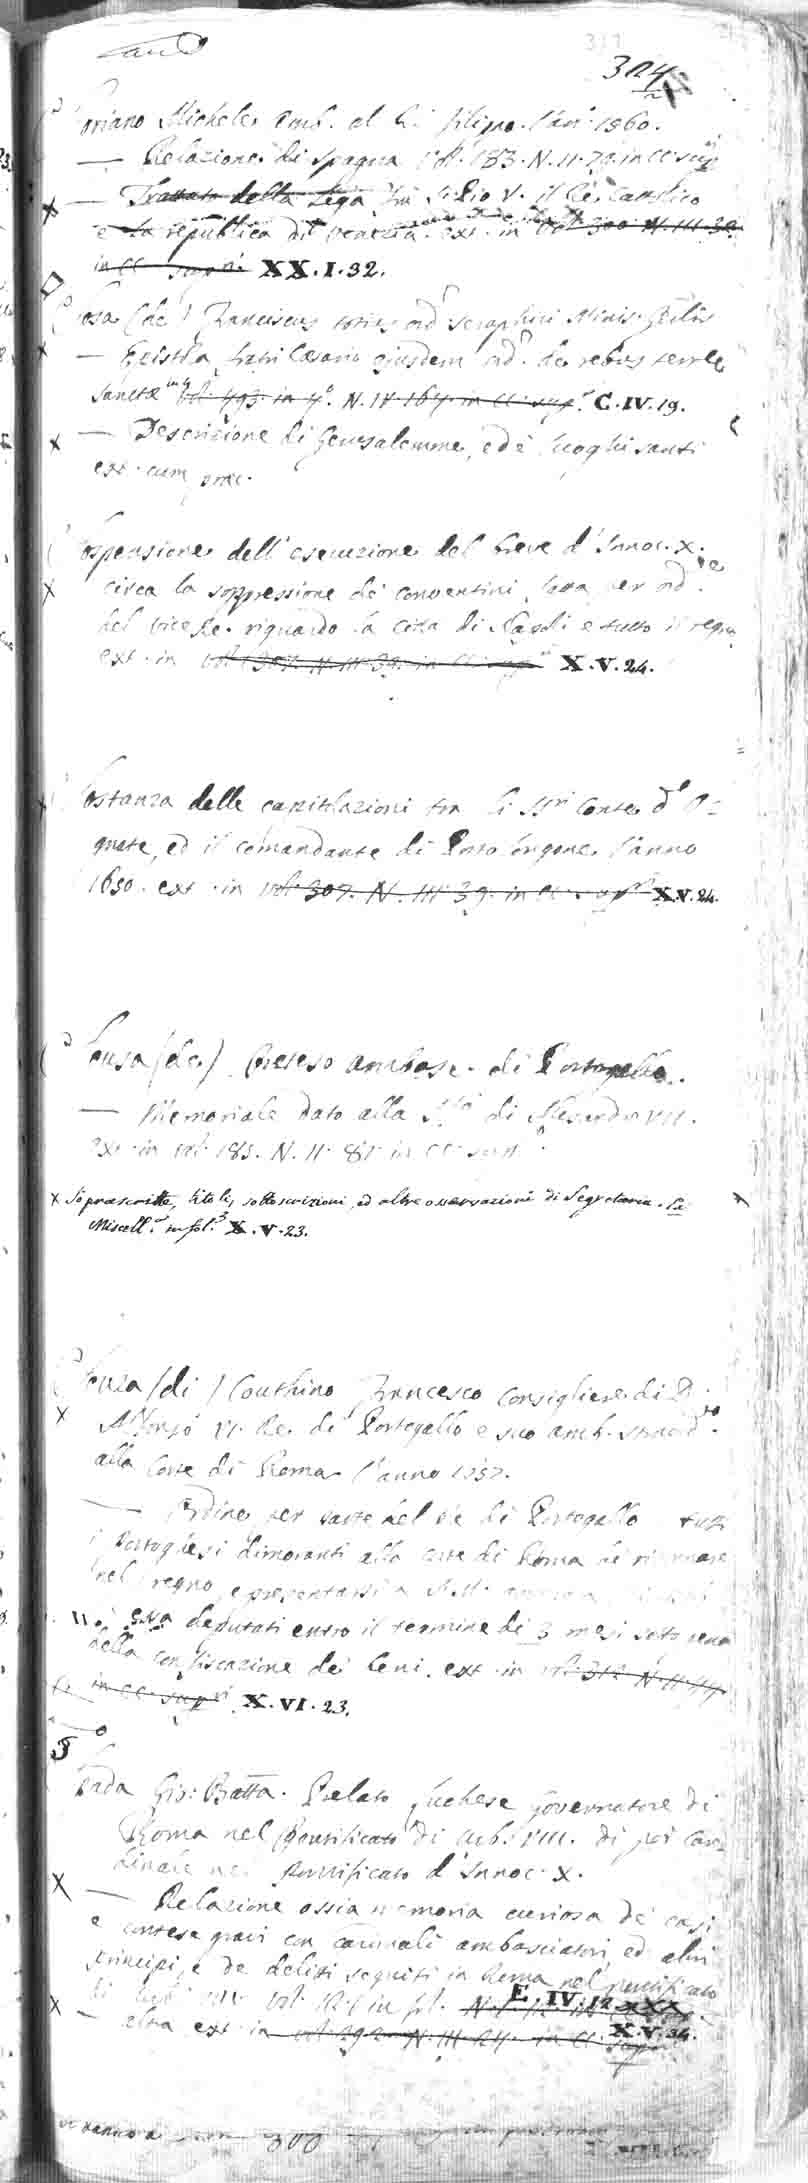 324
Soriano Michele amb. al Re Filippo l'an. 1560.
— Relazione di Spagna vol. 183. N. II. 72. in CC. sup.
— Trattato della Lega fra S. Pio V. il Re Cattolico
e la republica di Venezia ext. in vol. 300. N. III. 32.
in CC. sup.ri XX.I.32.
Sosa (de) Franciscus totius ord. seraphici Minis. Gnlis
— Epistola fratri Cæsario ejusdem ord. de rebus terræ
sanctæ vol. 493. in 4.o N. IV. 164. in CC. sup. C.IV.19.
— Descrizione di Gerusalemme, ed e' luoghi santi
ext. cum præc.
Sospensione dell'esecuzione del breve d'Innoc. X.
circa la soppressione de' conventini, fatta per ord.e
del vice Re riguardo la città di Napoli e tutto il regno
ext. in vol. 307. N. III. 39. in CC. sup. X.V.24.
Sostanza delle capitolazioni tra li SSri Conte d'O=
gnate, ed il comandante di Porto longone l'anno
1650. ext. in vol. 307. N. III. 39. in CC. sup. X.V.24.
Sousa (de) Preteso ambasc. di Portogallo.
— Memoriale dato alla S.tà di Alesandro VII.
ext. in vol. 185. N. II. 81. in CC. sup.
Soprascritte, titoli, sottoscrizioni, ed altre osservazioni di Segretaria.
Miscell. in fol. X.V.23.
Souza (di) Couthino Francesco consigliere di D.
Alfonso VI. Re di Portogallo e suo amb. straord.rio
alla Corte di Roma l'anno 1657.
— Ordine per parte del Re di Portogallo a tutti
i Portoghesi dimoranti alla corte di Roma di ritornare
nel regno e presentarsi a
deputati entro il termine di 3 mesi sotto pena
della confiscazione de' beni. ext. in vol. 312. N. II. 44.
in CC. sup.ri X.VI.23.
Spada Gio: Batta. Prelato Luchese governatore di
Roma nel Pontificato di Urb. VIII. di poi Car=
dinale nel Pontificato d'Innoc. X.
— Relazione ossia memoria curiosa de' casi
e contese gravi con cardinali ambasciatori ed altri
principi, e de delitti seguiti in Roma nel pontificato
di Urb. VIII. vol. in fol. E.IV.12
— altra ext. in vol. 292. N. III. 24. in CC. sup. X.V.34.